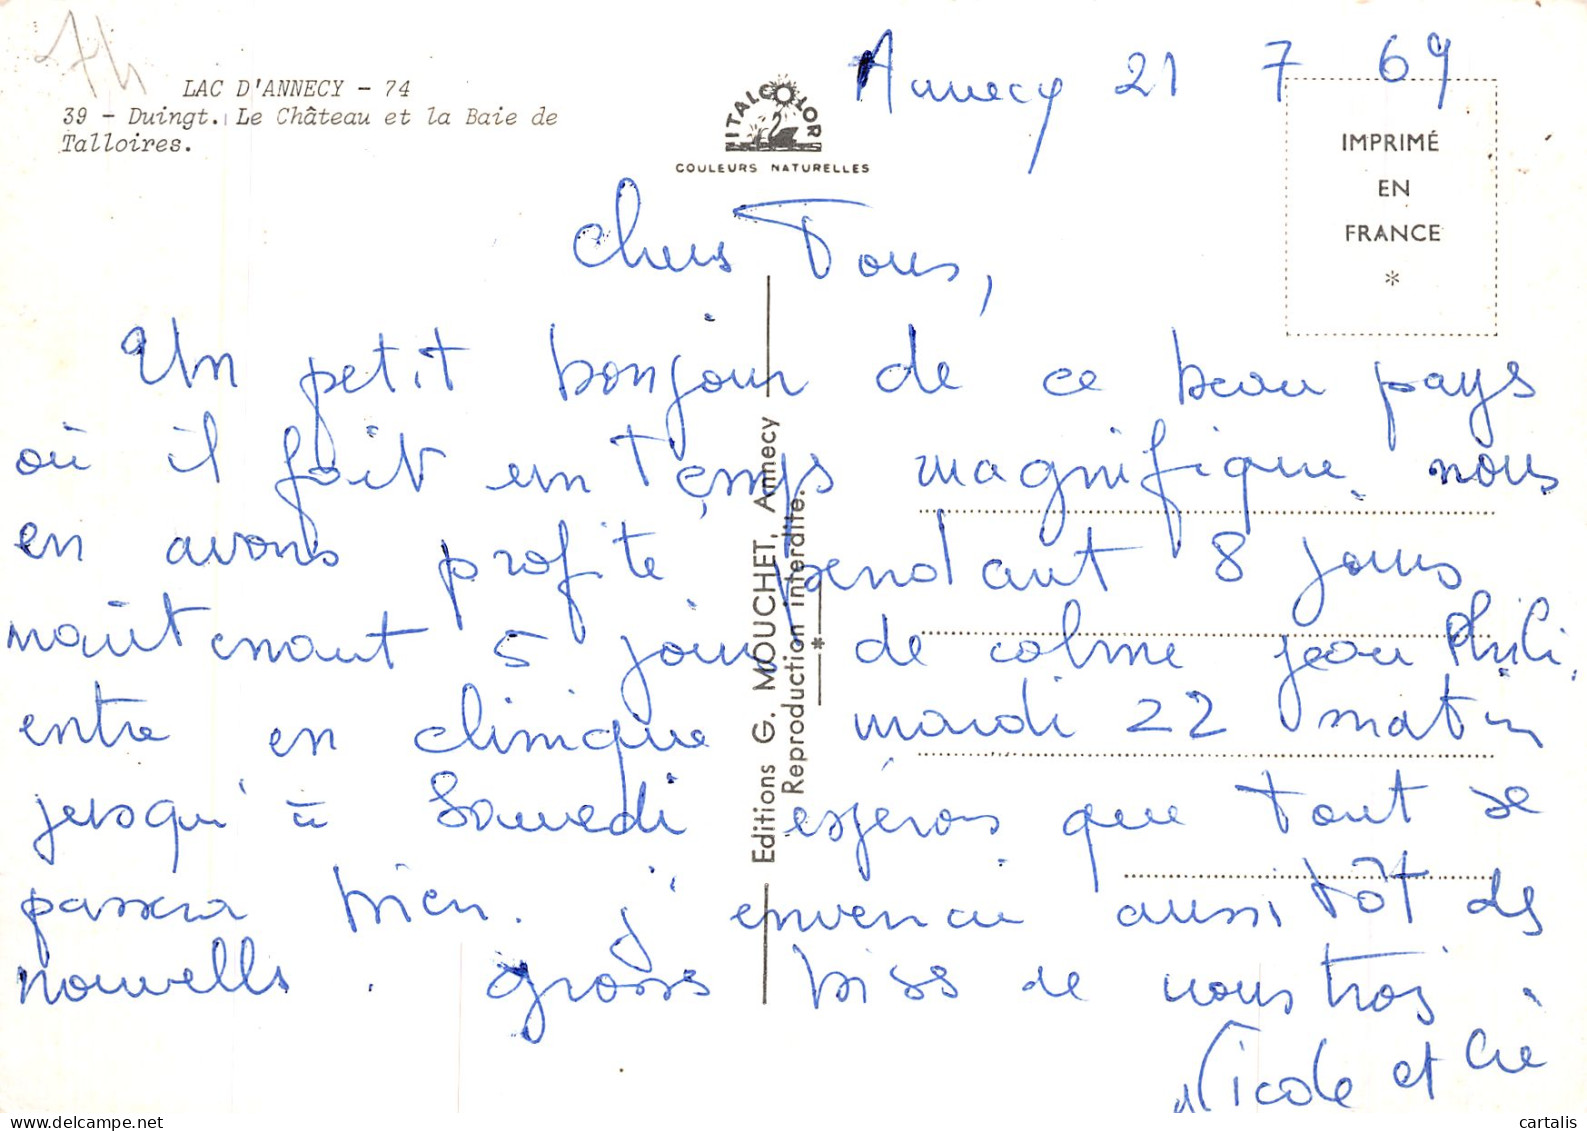 74
LAC D'ANNECY - 74
39 - Duingt. Le Château et la Baie de
Talloires.
ITALCOLOR
COULEURS NATURELLES
Annecy 21 7 69
IMPRIMÉ
EN
FRANCE
*
Chers Tous,
Un petit bonjour de ce beau pays
où il fait un temps magnifique nous
en avons profité pendant 8 jours
maintenant 5 jours de calme jean Phili.
entre en clinique mardi 22 matin
jusqu'à Samedi espérons que tout se
passera bien. j'enverrai aussitôt des
nouvells. grosses bises de nous trois.
Nicole et
Editions G. MOUCHET, Annecy
Reproduction interdite.
*
delcampe.net
cartalis